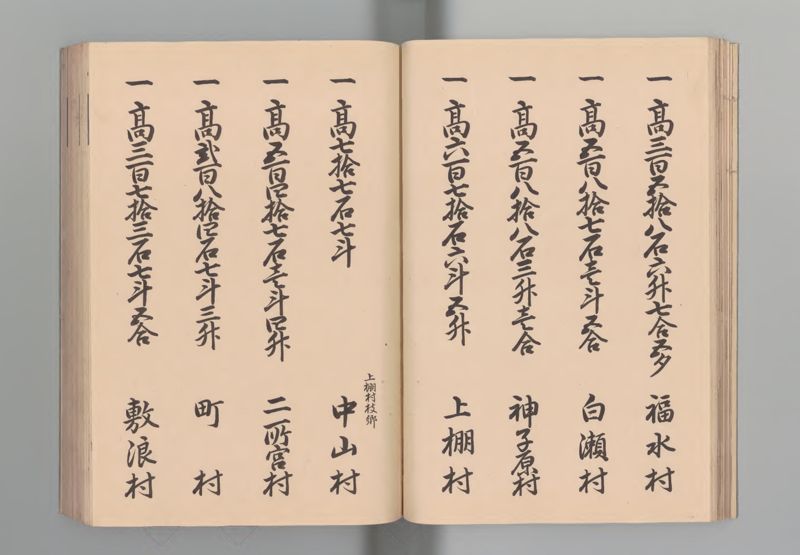 一 高三百五拾八石六升七合五夕 福水村
一 高五百八拾七石壱斗五合 白瀬村
一 高五百八拾八石三升壱合 神子原村
一 高六百七拾石六斗五升 上棚村
上棚村枝郷
一 高七拾七石七斗 中山村
一 高五百四拾七石壱斗四升 二所宮村
一 高弐百八拾四石七斗三升 町村
一 高三百七拾三石七斗五合 敷浪村